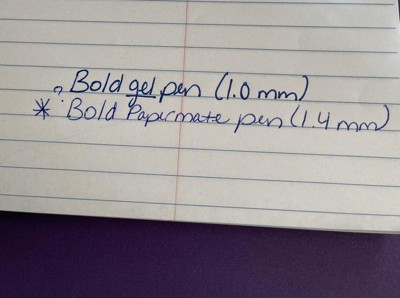 ? Bold gel pen (1.0 mm)
* Bold Papermate pen (1.4 mm)